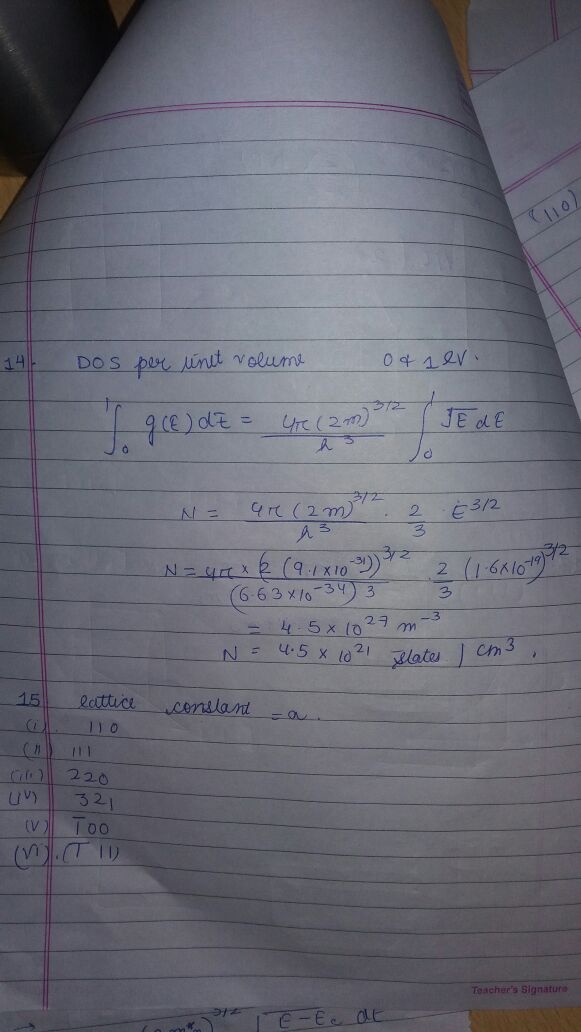 (110)
14. DOS per unit volume 0 & 1 eV.
∫₀¹ g(E) dE = 4π(2m)^3/2 / h^3 ∫₀¹ √E dE
N = 4π(2m)^3/2 / h^3 . 2/3 . E^3/2
N = 4π × (2 (9.1×10^-31))^3/2 / (6.63×10^-34)3 . 2/3 (1.6×10^-19)^3/2
= 4.5 × 10^27 m^-3
N = 4.5 × 10^21 states / cm^3.
15 lattice constant = a.
(i). 110
(ii) 111
(iii) 220
(iv) 321
(v) 1̅00
(vi). (1̅ 11)
Teacher's Signature
3/2 √E-Ec dE